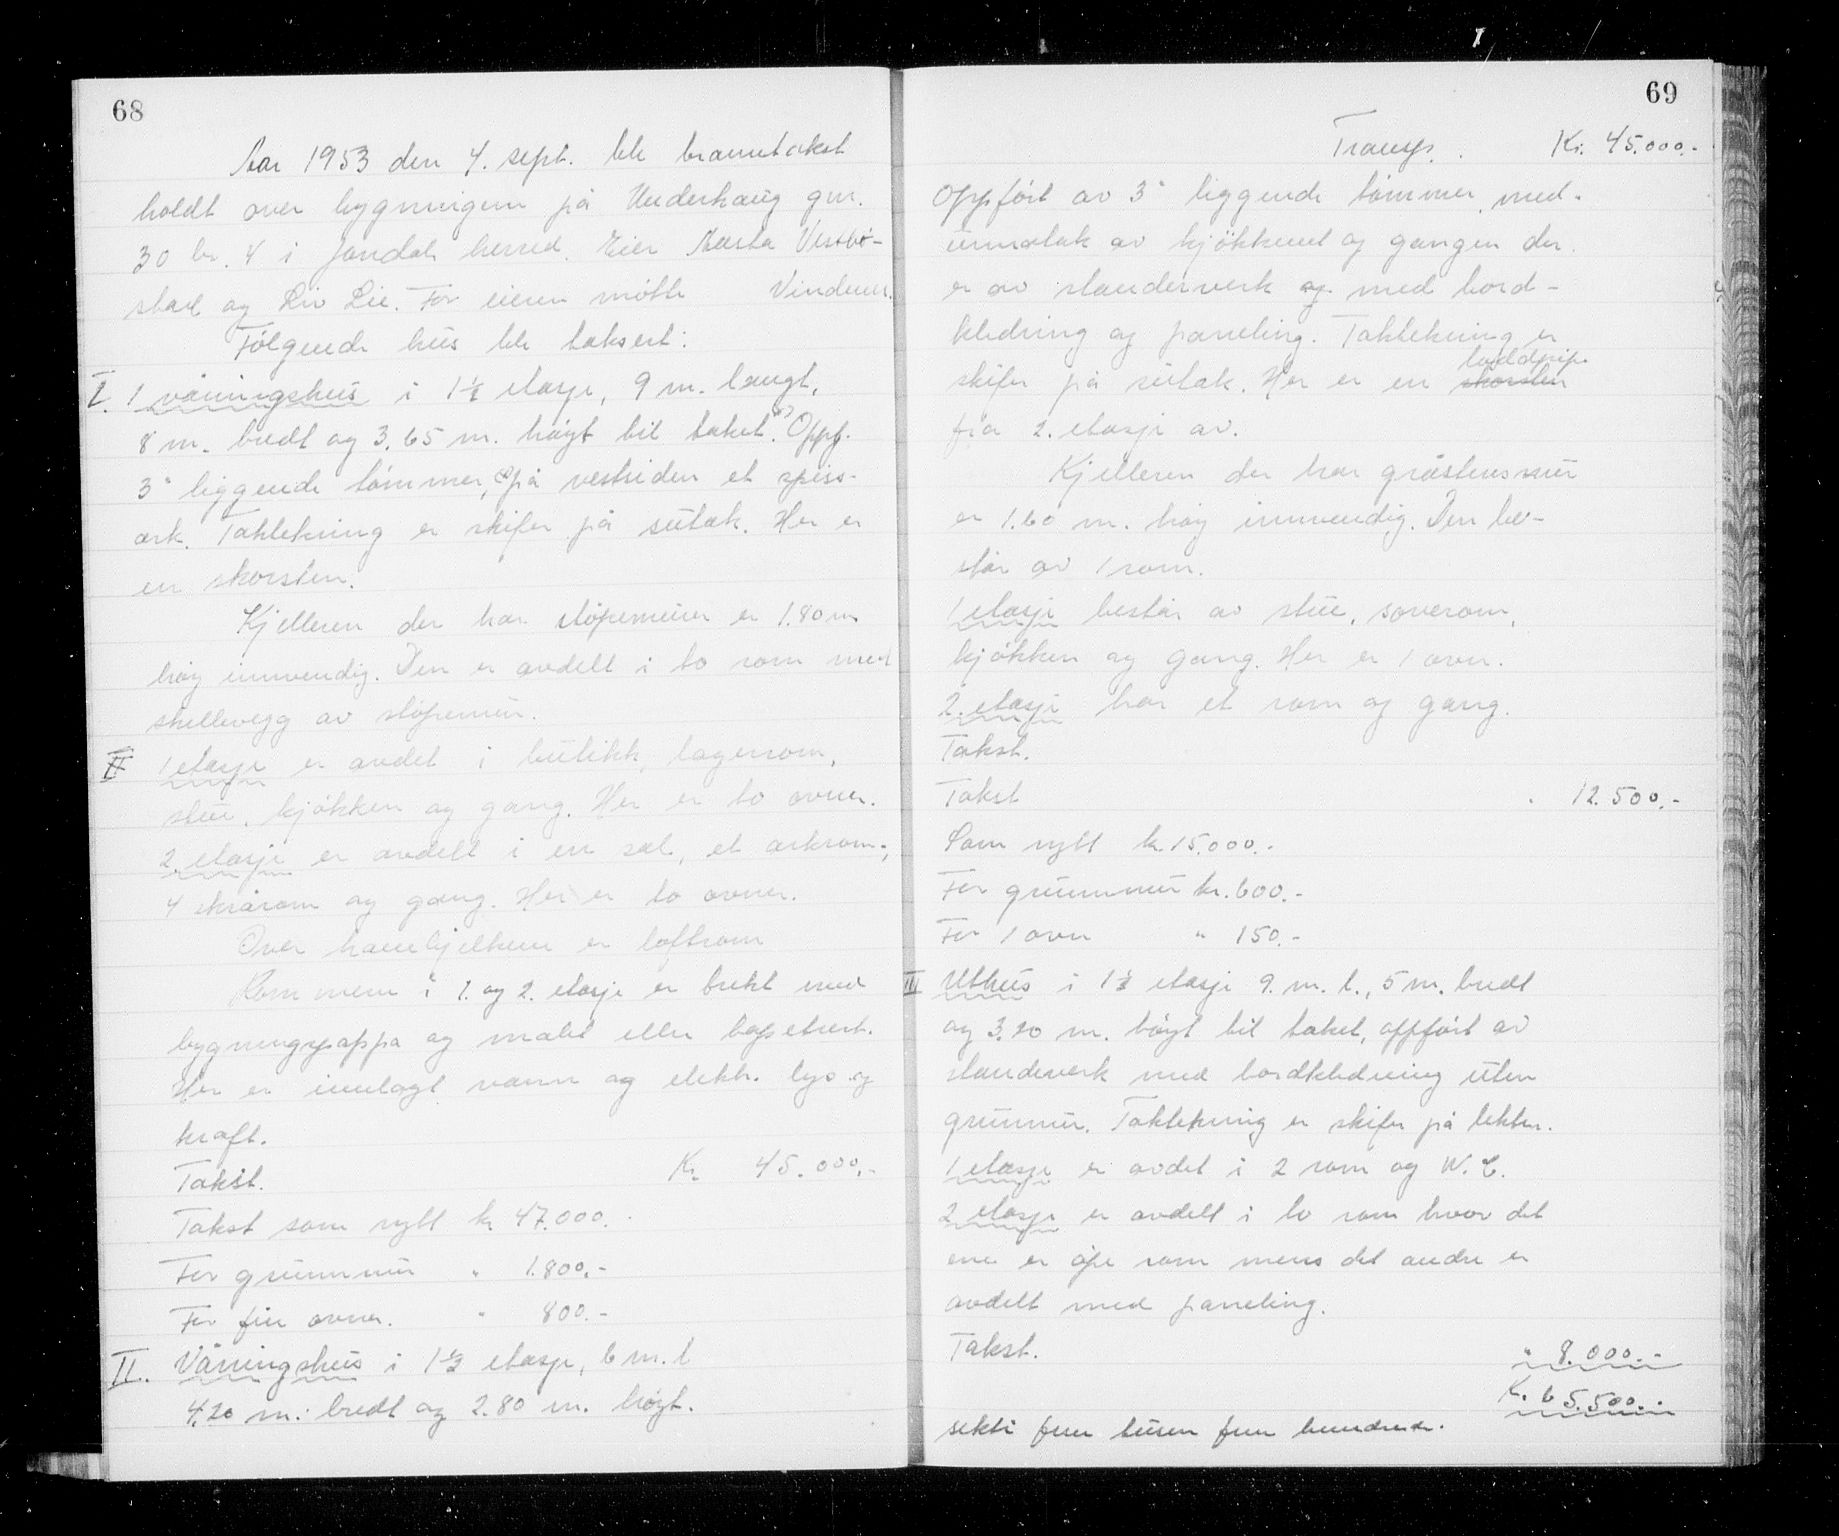 68
Aar 1953 den 4. sept. ble branntakst
holdt over bygningene på Underhaug gnr.
30 br. 4 i Jondal herred. Eier Aasta Vestbö-
stad og Liv Lie. For eieren møtte Vindenes.
Følgende hus ble taksert:
I. 1 våningshus i 1½ etasje, 9 m. langt,
8 m. bredt og 3.65 m. høyt til taket. Oppf.
3" liggende tømmer, på vestsiden et spiss-
ark. Taktekning er skifer på sutak. Her er
en skorsten.
Kjelleren der har støpemurer er 1.80 m
høy innvendig. Den er avdelt i to rom med
skillevegg av støpemur.
1 etasje er avdelt i butikk, lagerrom,
stue, kjøkken og gang. Her er to ovner.
2 etasje er avdelt i en sal, et arkrom,
4 skrårom og gang. Her er to ovner.
Over hanebjelkene er loftrom
Rommene i 1. og 2. etasje er trekt med
bygningspappa og malt eller tapetsert.
Her er innlagt vann og elektr. lys og
kraft.
Takst. Kr 45.000.-
Takst som nytt kr 47.000.
For grunnmur " 1.800.-
For fire ovner. " 800.-
II. Våningshus i 1½ etasje, 6 m. l
4.20 m. bredt og 2.80 m. høyt.
69
Transp. Kr. 45.000.-
Oppført av 3" liggende tømmer, med-
unnatak av kjøkkenet og gangen der
er av standerverk og med bord-
kledning og paneling. Taktekning er
skifer på sutak. Her er en skorsten loddpipe
fra 2. etasje av.
Kjelleren der har gråstensmur
er 1.60 m. høy innvendig. Den be-
står av 1 rom.
1 etasje består av stue, soverom,
kjøkken og gang. Her er 1 ovn.
2. etasje har et rom og gang.
Takst.
Takst " 12.500.-
Som nytt kr. 15.000.-
For grunnmur kr. 600.-
For 1 ovn " 150.-
III Uthus i 1½ etasje 9. m. l., 5 m. bredt
og 3.20 m. høyt til taket, oppført av
standerverk med bordkledning uten
grunnmur. Taktekning er skifer på lekter.
1 etasje er avdelt i 2 rom og W.C.
2 etasje er avdelt i to rom hvor det
ene er åpe rom mens det andre er
avdelt med paneling.
Takst. " 8.000.-
Kr. 65.500.-
seksti fem tusen fem hundrede.